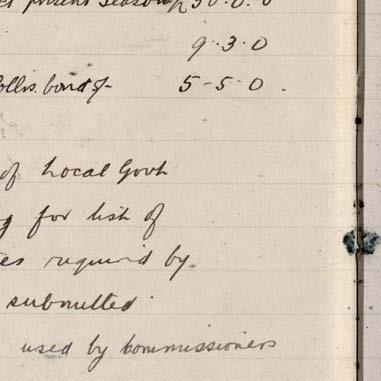 present season £50.0.0
9.3.0
Collrs. bond of 5-5-0.
of Local Govt
for list of
required by
submitted
used by Commissioners